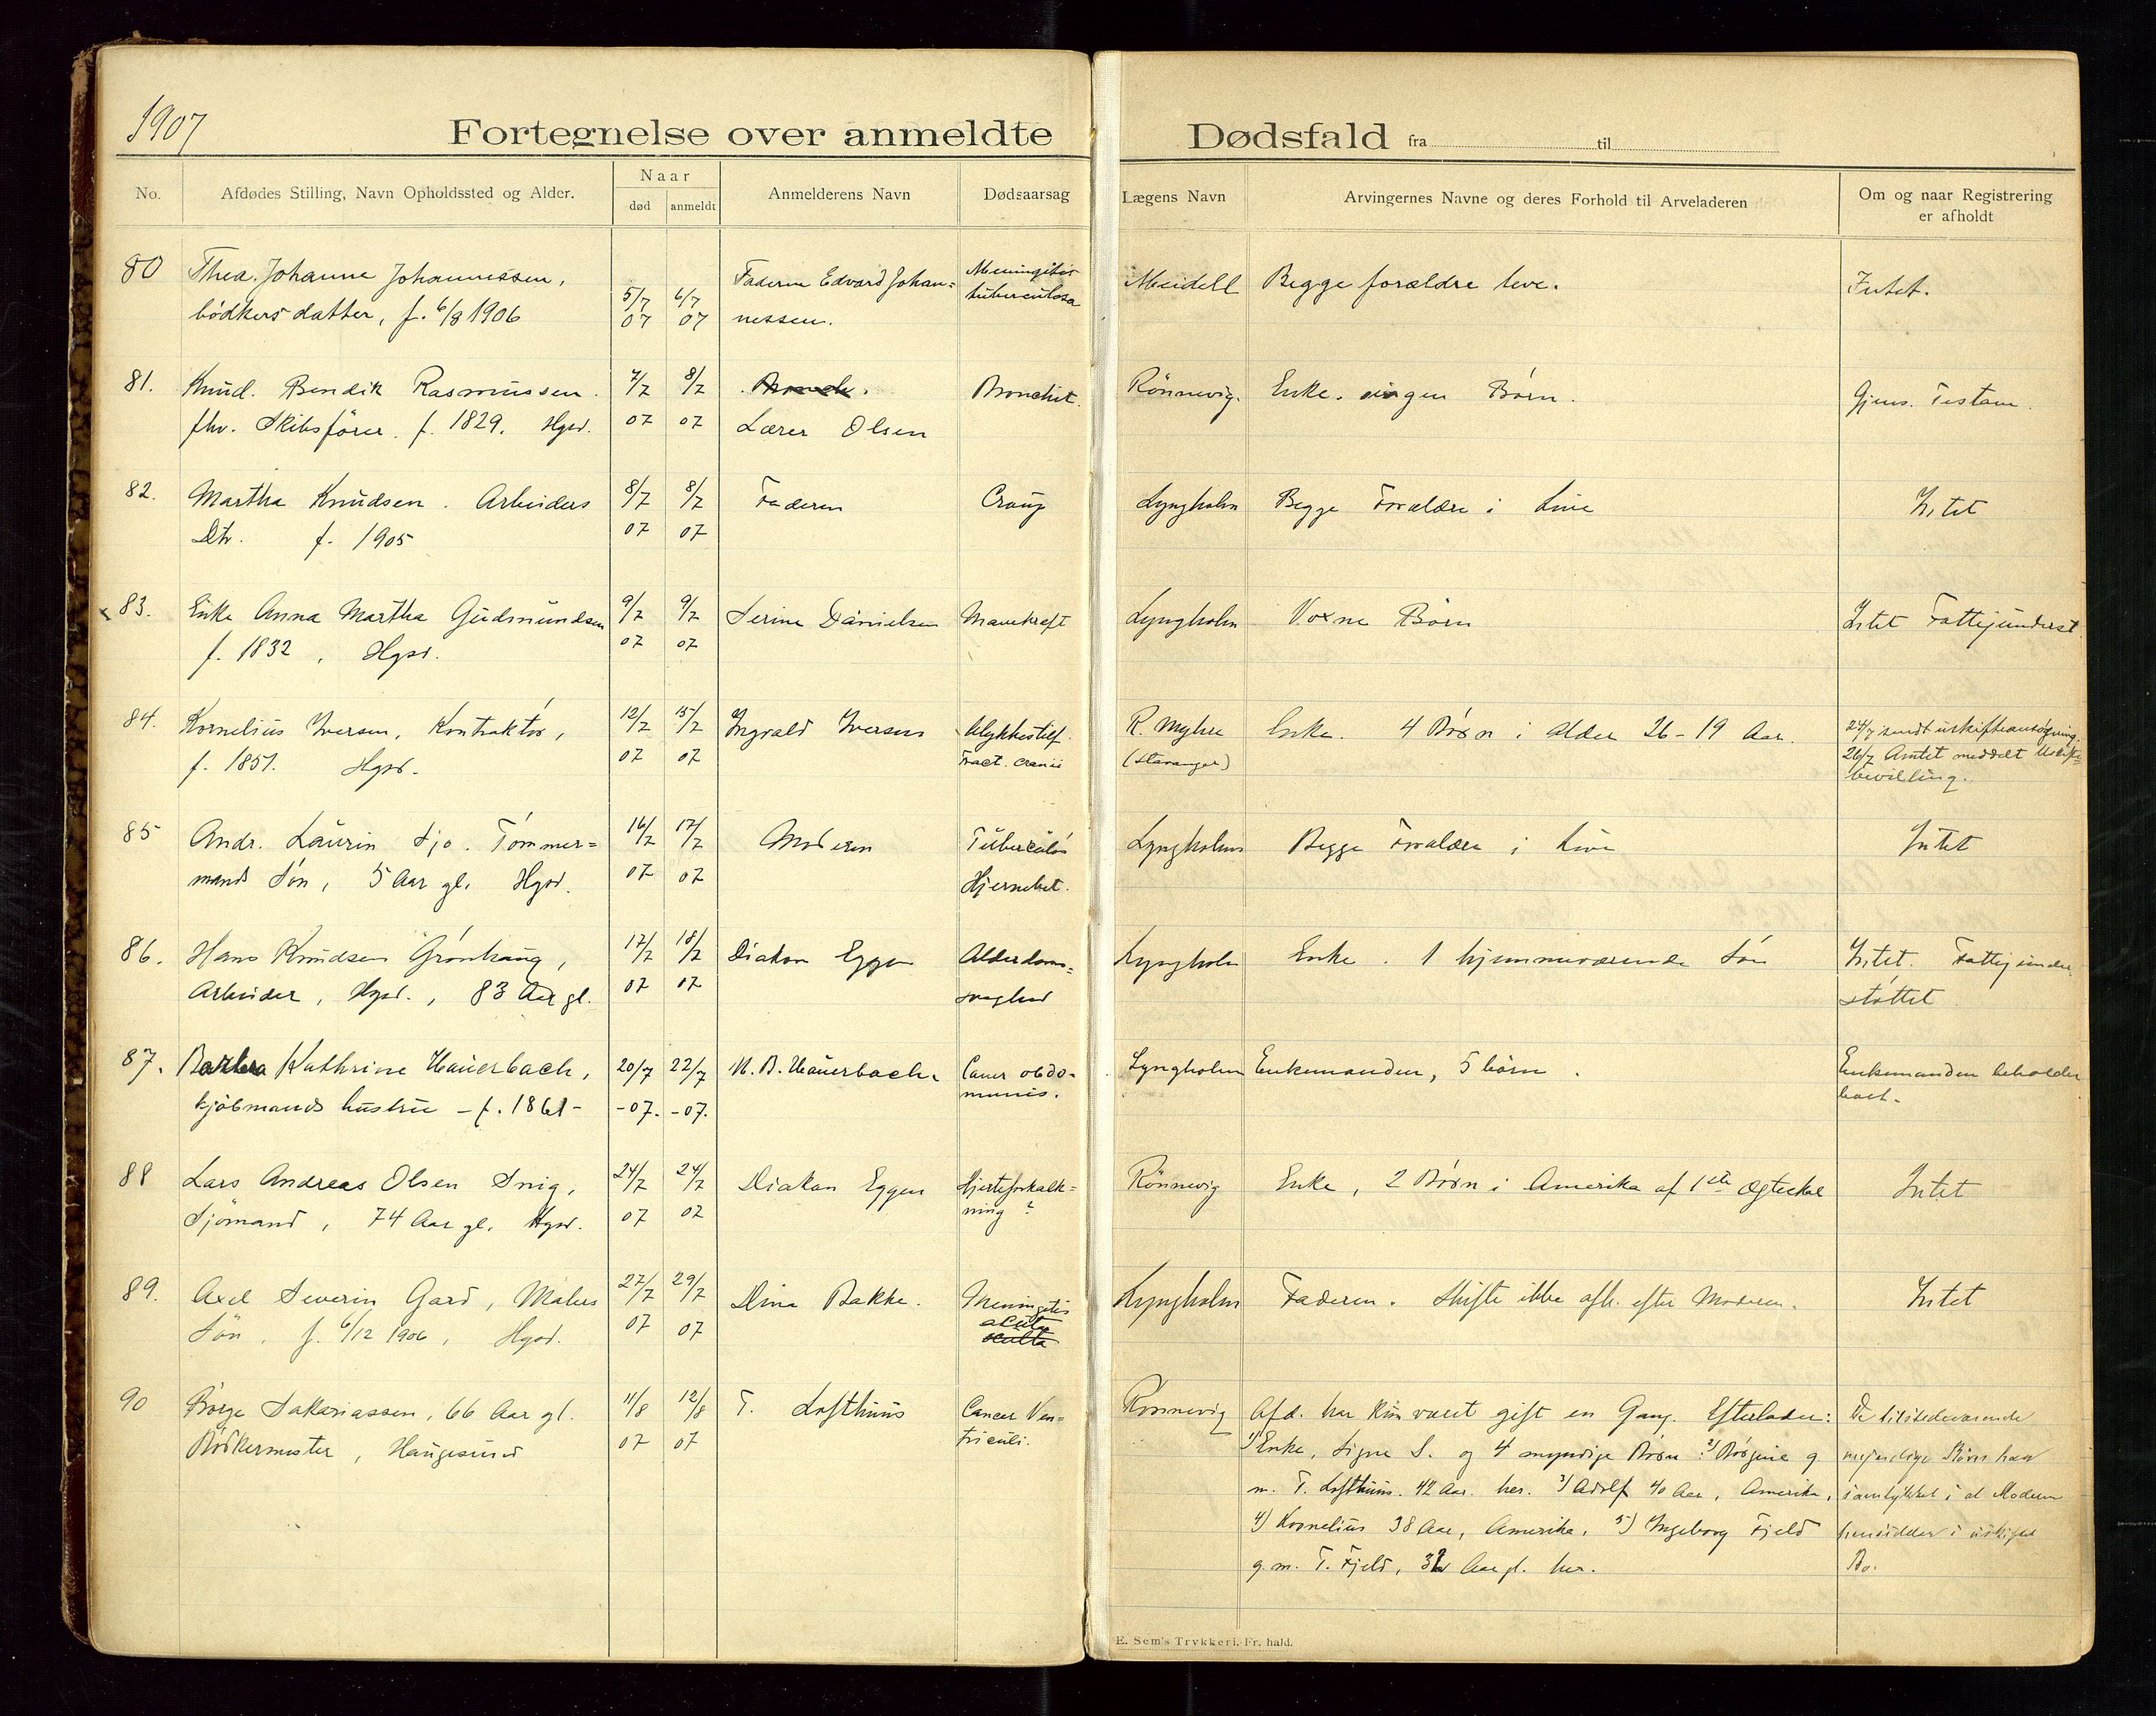 1907
Fortegnelse over anmeldte Dødsfald fra til
No. Afdødes Stilling, Navn Opholdssted og Alder. Naar død anmeldt Anmelderens Navn Dødsaarsag Lægens Navn Arvingernes Navne og deres Forhold til Arveladeren Om og naar Registrering er afholdt
80 Thea Johanne Johannessen, Faderen Edvard Johan= Meningitis Meidell Begge forældre leve. Intet.
bödkersdatter, f. 6/8 1906 5/7 07 6/7 07 nessen. tuberculosa
81. Knud Bendik Rasmussen. 7/7 8/7 Bronchit. Rönnevig. Enke. ingen Børn. Gjens. Testam.
fhv. Skibsfører. f. 1829. Hgsd. 07 07 Lærer Olsen
82. Martha Knudsen. Arbeiders 8/7 8/7 Faderen Croup Lyngholm Begge Forældre i Live Intet
Dtr. f. 1905 07 07
83. Enke Anna Martha Gudmundsen 9/7 9/7 Serine Danielsen Mavekræft Lyngholm Voxne Børn Intet Fattigunderst.
f. 1832, Hgsd. 07 07
84. Kornelius Iversen, Kontraktør, 12/7 15/7 Ingvald Iversen Ulykkestilf. R. Myhre Enke. 4 Børn i Alder 26-19 Aar. 24/7 sendt uskifteansøgning.
f. 1851. Hgsd. 07 07 Fract. cranii (Stavanger) 26/7 Amtet meddelt Uskifte=
bevilling.
85 Andr. Laurin Sjo. Tømmer= 16/7 17/7 Moderen Tuberculøs Lyngholm Begge Forældre i Live Intet
mands Søn, 5 Aar gl. Hgsd. 07 07 Hjernebet.
86. Hans Knudsen Grönhaug, 17/7 18/7 Diakon Eggen Alderdoms= Lyngholm Enke. 1 hjemmeværende Søn Intet. Fattigunder
Arbeider, Hgsd., 83 Aar gl. 07 07 svaghed støttet
87. Barbra Kathrine Hauerbach, 20/7 22/7 N. B. Hauerbach. Cancer abdo- Lyngholm Enkemanden, 5 børn. Enkemanden beholder
kjöbmands hustru - f. 1861- -07. -07. minis. boet.
88 Lars Andreas Olsen Snig, 24/7 24/7 Diakon Eggen Hjerteforkalk= Rönnevig Enke, 2 Børn i Amerika af 1ste Ægteskab Intet
Sjømand, 74 Aar gl. Hgsd. 07 07 ning ?
89. Axel Severin Gard, Malers 27/7 29/7 Dina Bakke. Meningitis Lyngholm Faderen. Skifte ikke afh. efter Moderen. Intet
Søn, f. 6/12 1906, Hgsd. 07 07 acuta
90 Børge Sakariassen, 66 Aar gl. 11/8 12/8 T. Lofthuus Cancer Ven= Rönnevig Afd. har kun været gift en Gang. Efterlader: De tilstedeværende
Bødkermester, Haugesund 07 07 triculi. 1) Enke, Signe S. og 4 myndige Børn: 2) Børgine g. myndige Børn har
m. T. Lofthuus. 42 Aar. her. 3) Adolf 40 Aar, Amerika, samtykket i at Moderen
4) Kornelius 38 Aar, Amerika. 5) Ingeborg Fjeld hensidder i uskiftet
g. m. T. Fjeld, 32 Aar gl. her. Bo.
E. Sem's Trykkeri. Fr. hald.